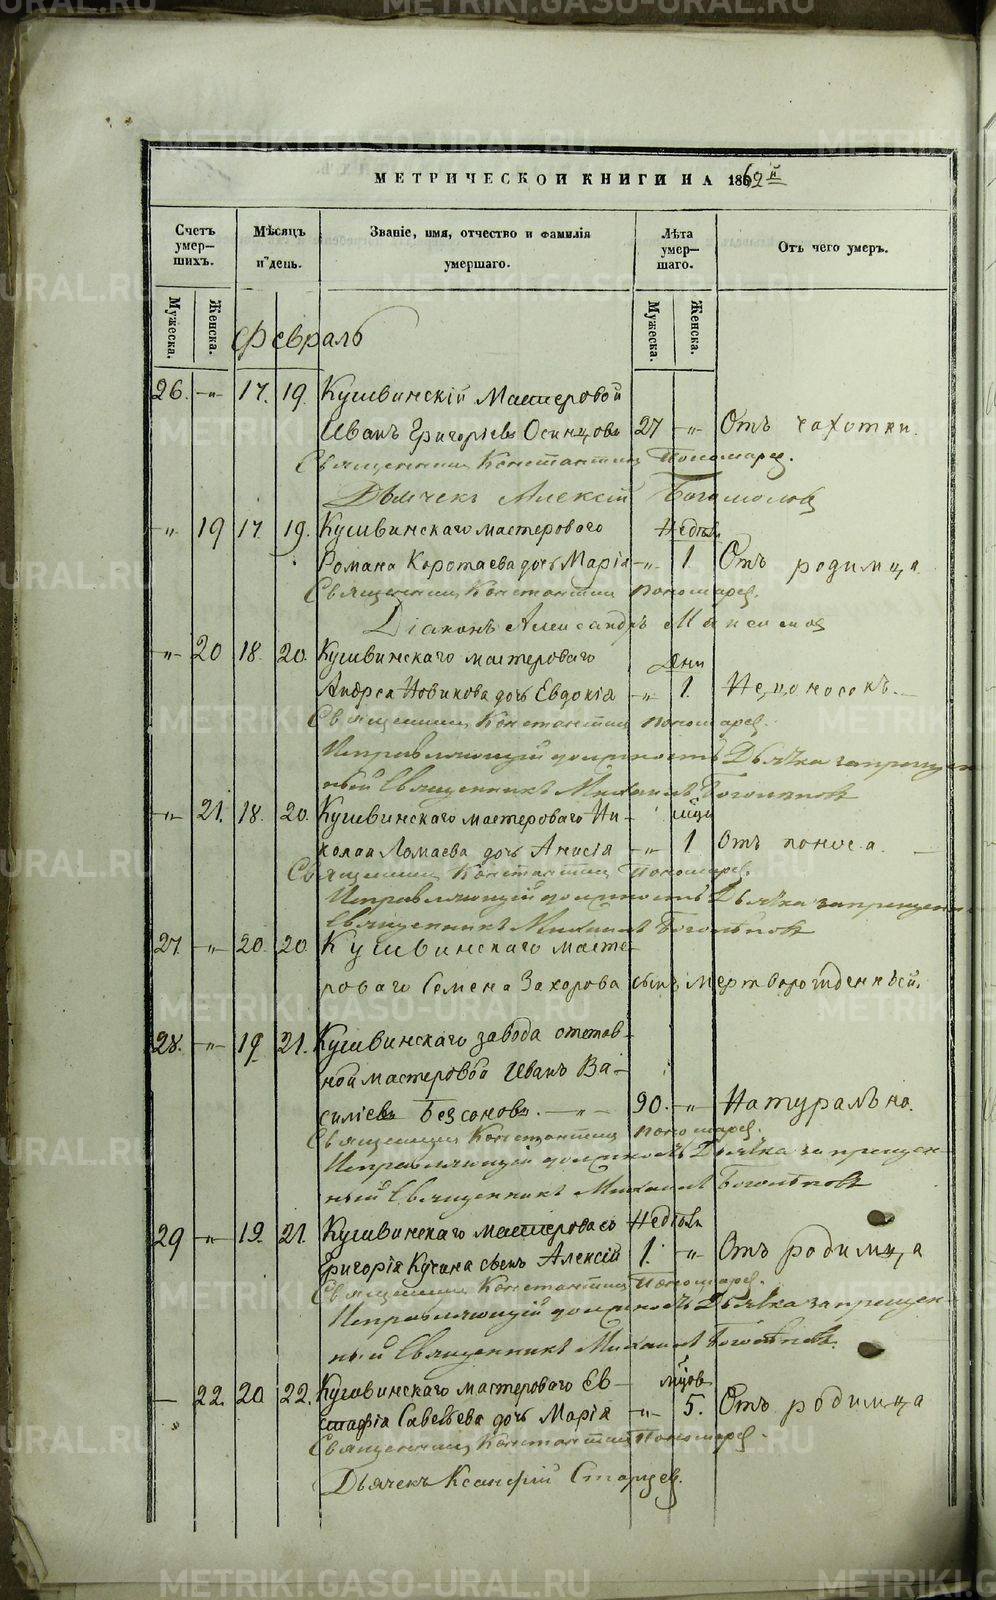 METRIKI.GASO-URAL.RU
МЕТРИЧЕСКОЙ КНИГИ НА 1862й
Счетъ умер-шихъ.
Мѣсяцъ и день.
Званіе, имя, отчество и фамилія умершаго.
Лѣта умер-шаго.
Отъ чего умеръ.
Мужеска.
Женска.
Мужеска.
Женска.
Февраль
26. -"- 17. 19. Кушвинскій Мастеровой
Иванъ Григоріевъ Осинцовъ 27 -"- Отъ чахотки.
Священникъ Константинъ Пономарев.
Дьячекъ Алексій Богомолов
-"- 19 17. 19. Кушвинскаго мастероваго Недѣль
Романа Коротаева дочь Марія -"- 1. Отъ родимца.
Священникъ Константинъ Пономарев.
Діаконъ Александръ
-"- 20 18. 20. Кушвинскаго мастероваго Дни
Андрея Новикова дочь Евдокія -"- 1. Недоносокъ.
Священникъ Константинъ Пономарев.
Исправляющій должность Дьячка запрещен-
ный Священникъ Михаилъ
-"- 21. 18. 20. Кушвинскаго мастероваго Ни- мѣсц
колая Ломаева дочь Анисія -"- 1 Отъ поноса.
Священникъ Константинъ Пономарев.
Исправляющій должность Дьячка запрещен
Священникъ Михаилъ
27. -"- 20. 20 Кушвинскаго масте-
роваго Семена Захорова сынъ мертворожденный.
28. -"- 19. 21. Кушвинскаго завода отстав-
ной мастеровой Иванъ Ва-
силіевъ Безсоновъ. -"- 90. -"- Натурально.
Священникъ Константинъ Пономарев.
Исправляющій должность Дьячка запрещен-
ный Священникъ Михаилъ
29 -"- 19. 21. Кушвинскаго мастероваго Недѣль
Григорія Кучина сынъ Алексій 1. -"- Отъ родимца
Священникъ Константинъ Пономарев.
Исправляющій должность Дьячка запрещен-
ный Священникъ Михаилъ
- 22. 20 22. Кушвинскаго мастероваго Ев- мѣсцов
стафія Савельева дочь Марія -"- 5. Отъ родимца
Священникъ Константинъ Пономарев.
Дьячекъ Ксанфій Старцев.
METRIKI.GASO-URAL.RU